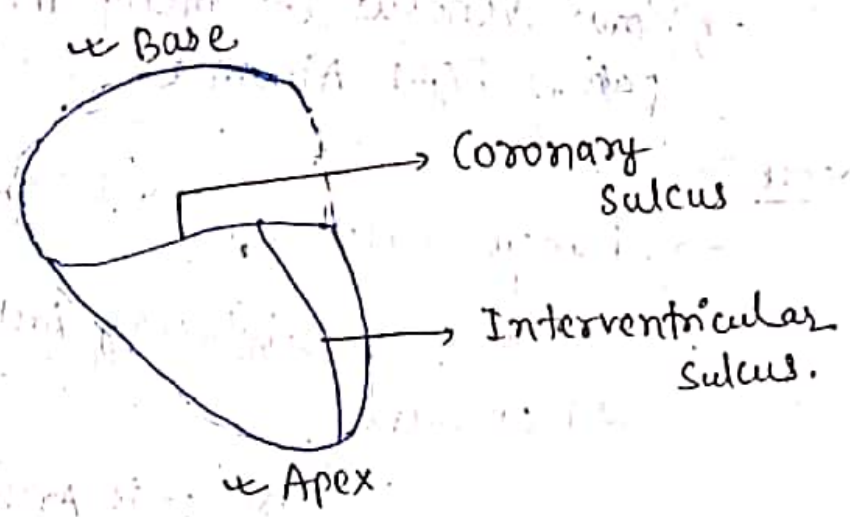 Base
Coronary
Sulcus
Interventricular
Sulcus.
Apex.